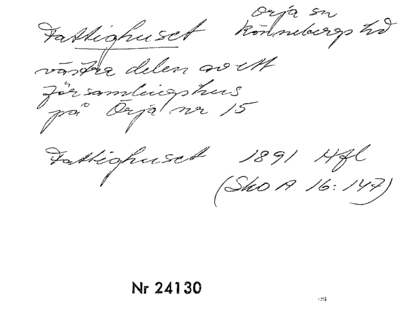 Örja sn
Fattighuset Rönnebergs hd
västra delen av ett
församlingshus
på Örja nr 15
Fattighuset 1891 Hfl
(Sko A 16:147)
Nr 24130